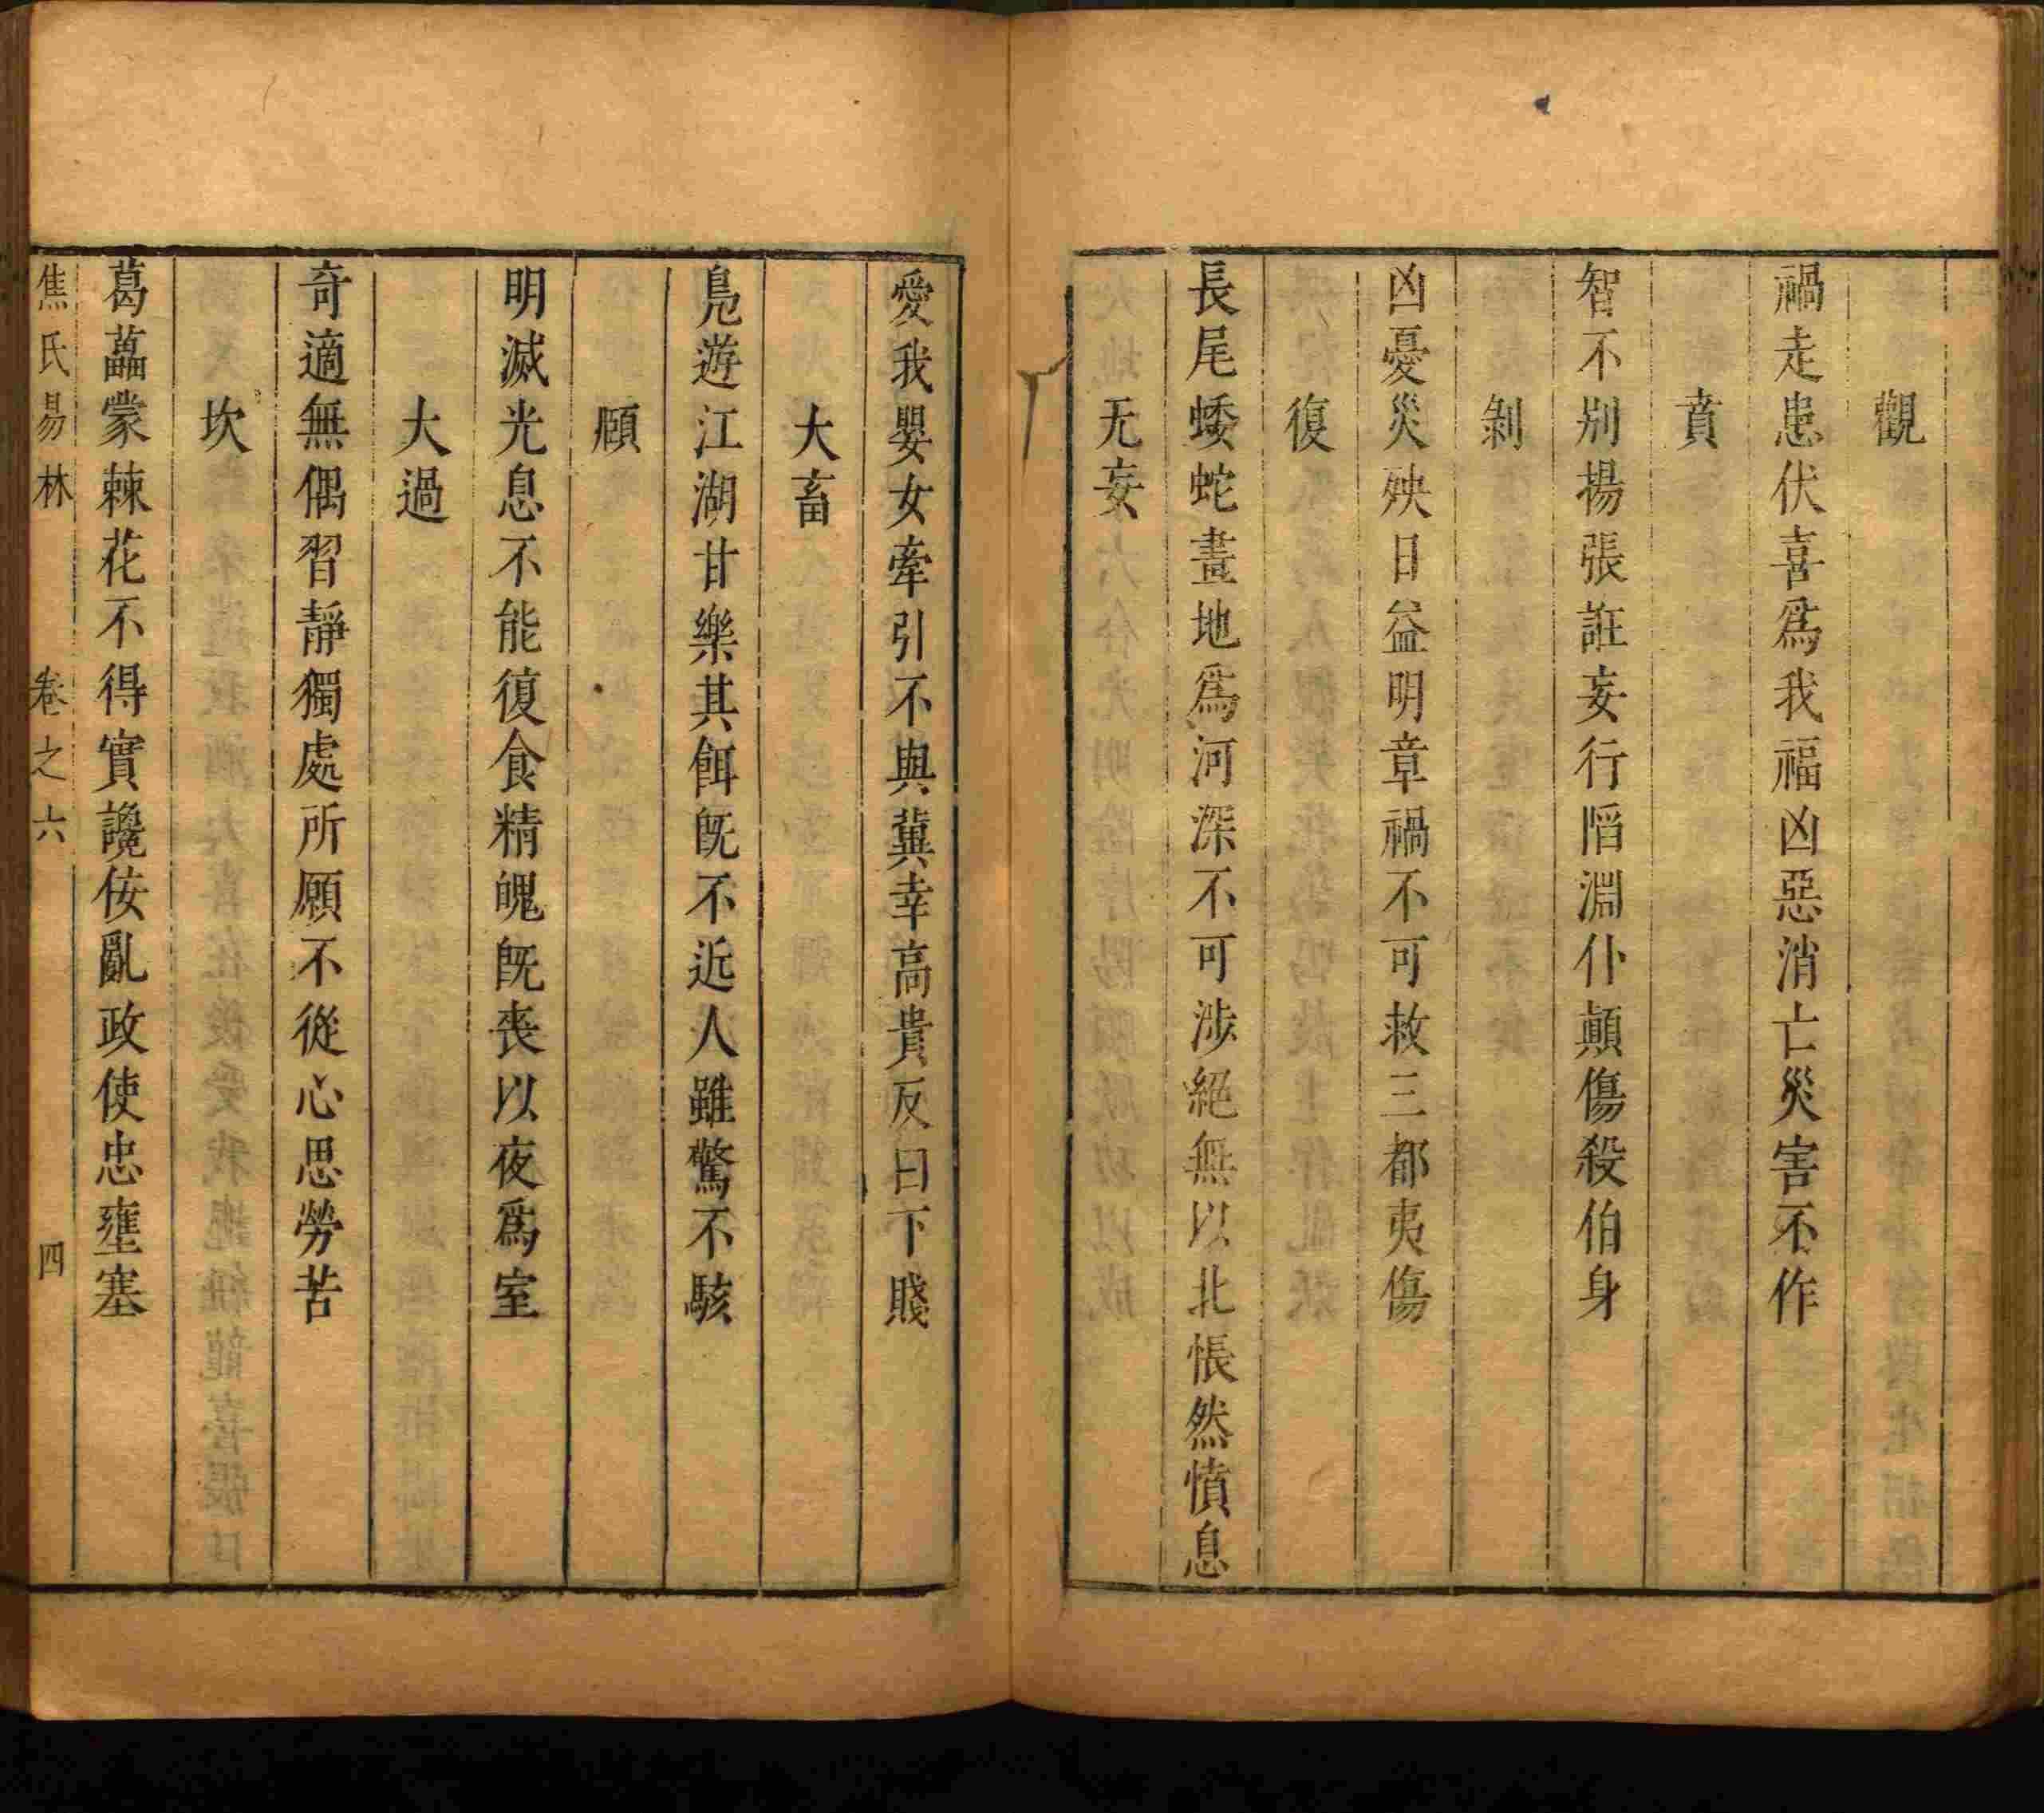 觀
禍走患伏喜爲我福凶惡消亡災害不作
賁
智不別揚張誑妄行㴞淵仆顛傷殺伯身
剝
凶憂災殃日益明章禍不可救三都夷傷
復
長尾蜲蛇畫地爲河深不可涉絕無以北悵然憤息
无妄
愛我嬰女牽引不與冀幸高貴反曰下賤
大畜
鳧遊江湖甘樂其餌旣不近人雖驚不駭
頤
明滅光息不能復食精魄旣喪以夜爲室
大過
奇適無偶習靜獨處所願不從心思勞苦
坎
葛藟蒙棘花不得實讒佞亂政使忠壅塞
焦氏易林 卷之六 四